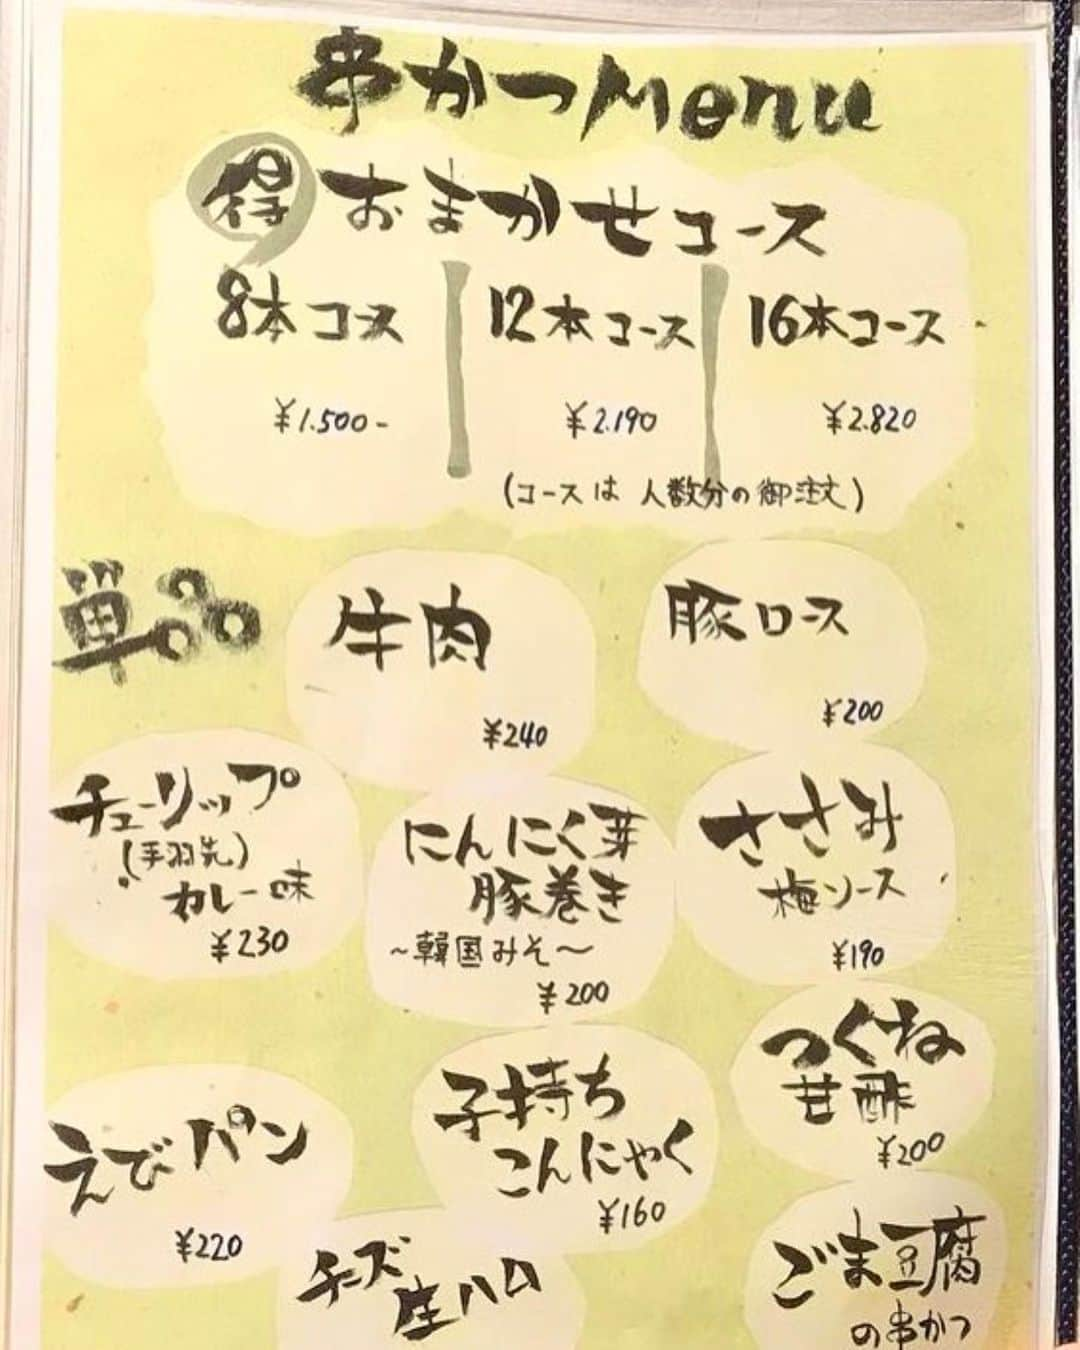 串かつMenu
得 おまかせコース
8本コース
¥1.500-
12本コース
¥2.190
16本コース
¥2.820
(コースは 人数分の御注文)
単品
牛肉
¥240
豚ロース
¥200
チューリップ
(手羽先)
カレー味
¥230
にんにく芽
豚巻き
~韓国みそ~
¥200
ささみ
梅ソース
¥190
つくね
甘酢
¥200
えびパン
¥220
子持ち
こんにゃく
¥160
チーズ
生ハム
ごま豆腐
の串かつ